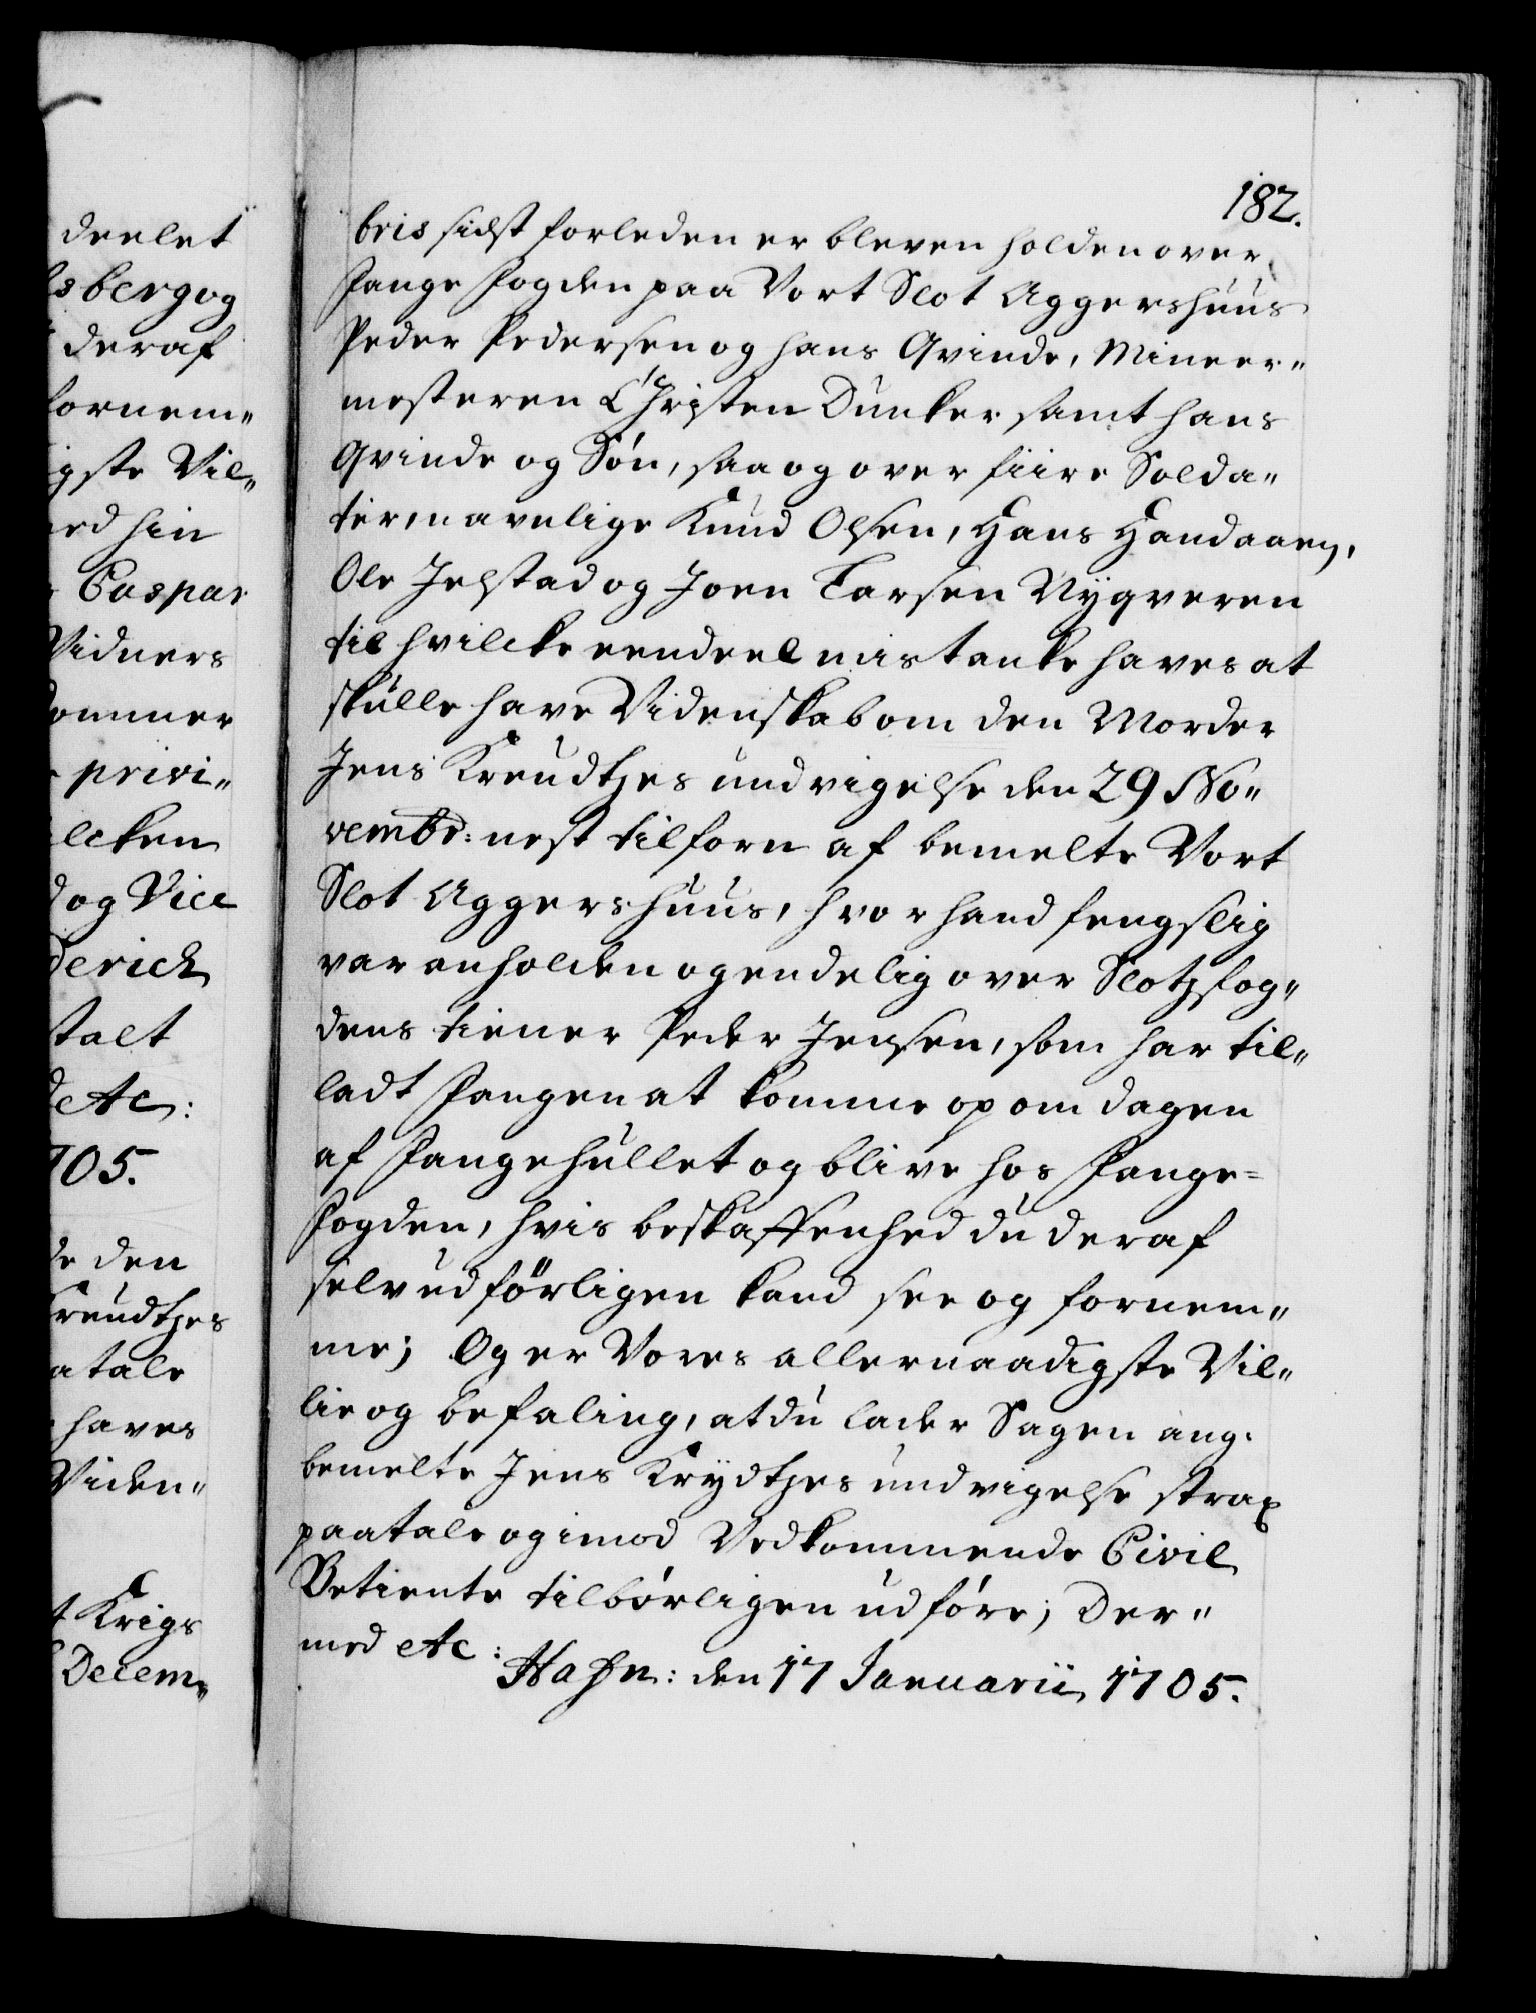 deelet
sberg og
deraf
fornem„
igste Vil„
ed hin
Caspar
Vidners
ommer
privi„
lcken
og Vice
derich
stalt
etc:
705.
de den
Kreudtzes
atale
haves
Viden„
Krigs
Decem„
182.
bris sidst forleden er bleven holden over
Fange fogden paa Vort Slot Aggershuus
Peder Pedersen og hans Qvinde, Mineer„
mesteren Christen Dunker samt hans
Qvinde og Søn, saa og over fiire Solda„
ter, navnlige Knud Olsen, Hans Handaaen,
Ole Jelstad og Joen Larsen Nyqveren
til hvilcke eendeel mistanke haves at
skulle have Videnskab om den Morder
Jens Kreudtzes undvigelse den 29 No„
vembr: nest tilforn af bemelte Vort
Slot Aggershuus, hvor hand fengslig
var anholden og endelig over Slotzfog„
dens tiener Peder Jensen, som har til„
ladt Fangen at komme op om dagen
af Fangehullet og blive hos Fange=
fogden, hvis beskaffenhed du deraf
selv udförligen kand see og fornem„
me; Og er Vores allernaadigste Vil„
lie og befaling, at du lader Sagen ang:
bemelte Jens Krydtzes undvigelse strax
paatale og imod Vedkommende Civil
Betiente tilbørligen udføre; Der„
med etc: Hafn: den 17 Januarii 1705.